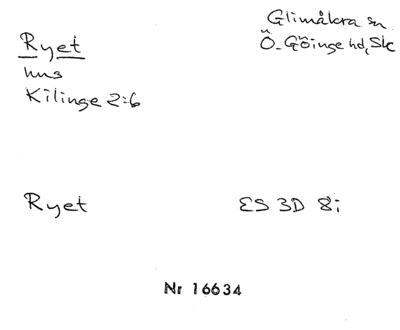 Glimåkra sn
Ryet
Ö-Göinge hd, Sk
hns
Kilinge 2:6
Ryet ES 3D 8i
Nr 16634